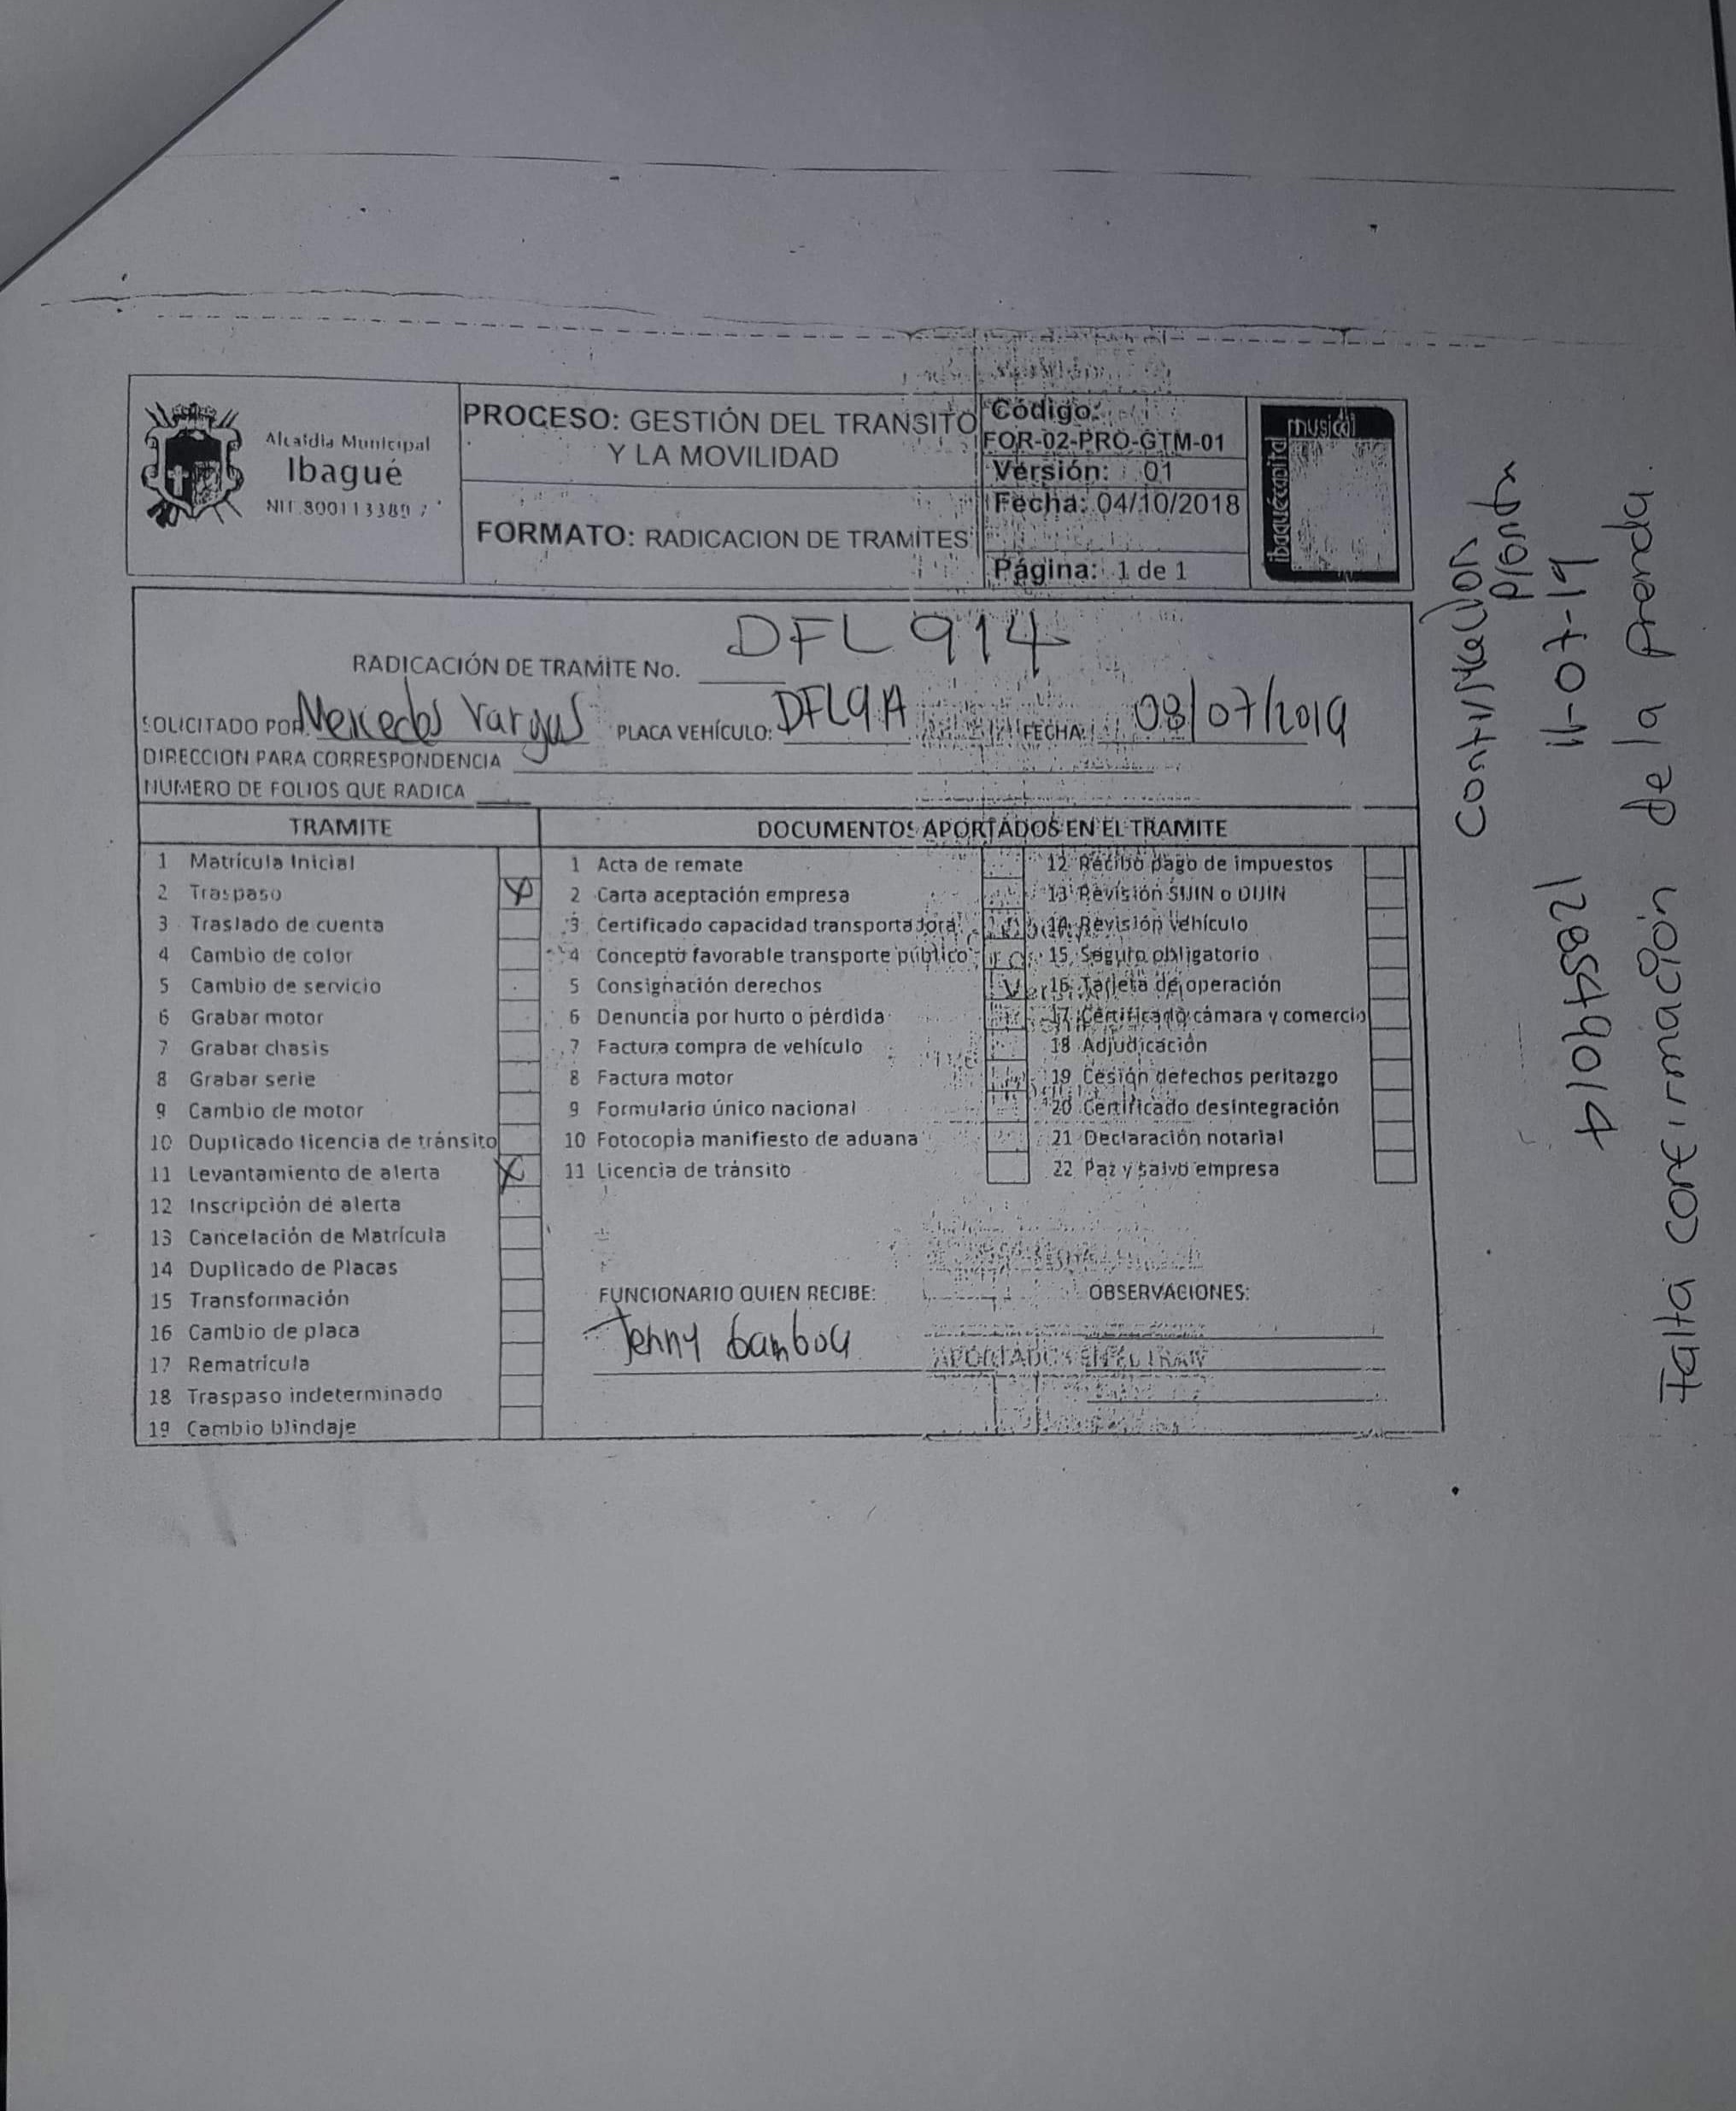 Alcaldía Municipal
Ibagué
NIT.800113389 7
PROCESO: GESTIÓN DEL TRANSITO
Y LA MOVILIDAD
FORMATO: RADICACION DE TRAMITES
Código:
FOR-02-PRO-GTM-01
Versión: 01
Fecha: 04/10/2018
Página: 1 de 1
musical
ibaguécapital
RADICACIÓN DE TRAMITE No. DFL 914
SOLICITADO POR: Mercedes Vargas PLACA VEHÍCULO: DFL914 FECHA: 08/07/2019
DIRECCION PARA CORRESPONDENCIA
NUMERO DE FOLIOS QUE RADICA
TRAMITE
1 Matrícula Inicial
2 Traspaso X
3 Traslado de cuenta
4 Cambio de color
5 Cambio de servicio
6 Grabar motor
7 Grabar chasis
8 Grabar serie
9 Cambio de motor
10 Duplicado licencia de tránsito
11 Levantamiento de alerta X
12 Inscripción de alerta
13 Cancelación de Matrícula
14 Duplicado de Placas
15 Transformación
16 Cambio de placa
17 Rematrícula
18 Traspaso indeterminado
19 Cambio blindaje
DOCUMENTOS APORTADOS EN EL TRAMITE
1 Acta de remate
2 Carta aceptación empresa
3 Certificado capacidad transportadora
4 Concepto favorable transporte público
5 Consignación derechos
6 Denuncia por hurto o pérdida
7 Factura compra de vehículo
8 Factura motor
9 Formulario único nacional
10 Fotocopia manifiesto de aduana
11 Licencia de tránsito
12 Recibo pago de impuestos
13 Revisión SIJIN o DIJIN
14 Revisión vehículo
15 Seguro obligatorio
16 Tarjeta de operación
17 Certificado cámara y comercio
18 Adjudicación
19 Cesión derechos peritazgo
20 Certificado desintegración
21 Declaración notarial
22 Paz y salvo empresa
FUNCIONARIO QUIEN RECIBE:
Jenny Gamboa
OBSERVACIONES:
APORTADOS EN EL TRAM
11-07-19
Falta confirmación de la prenda.